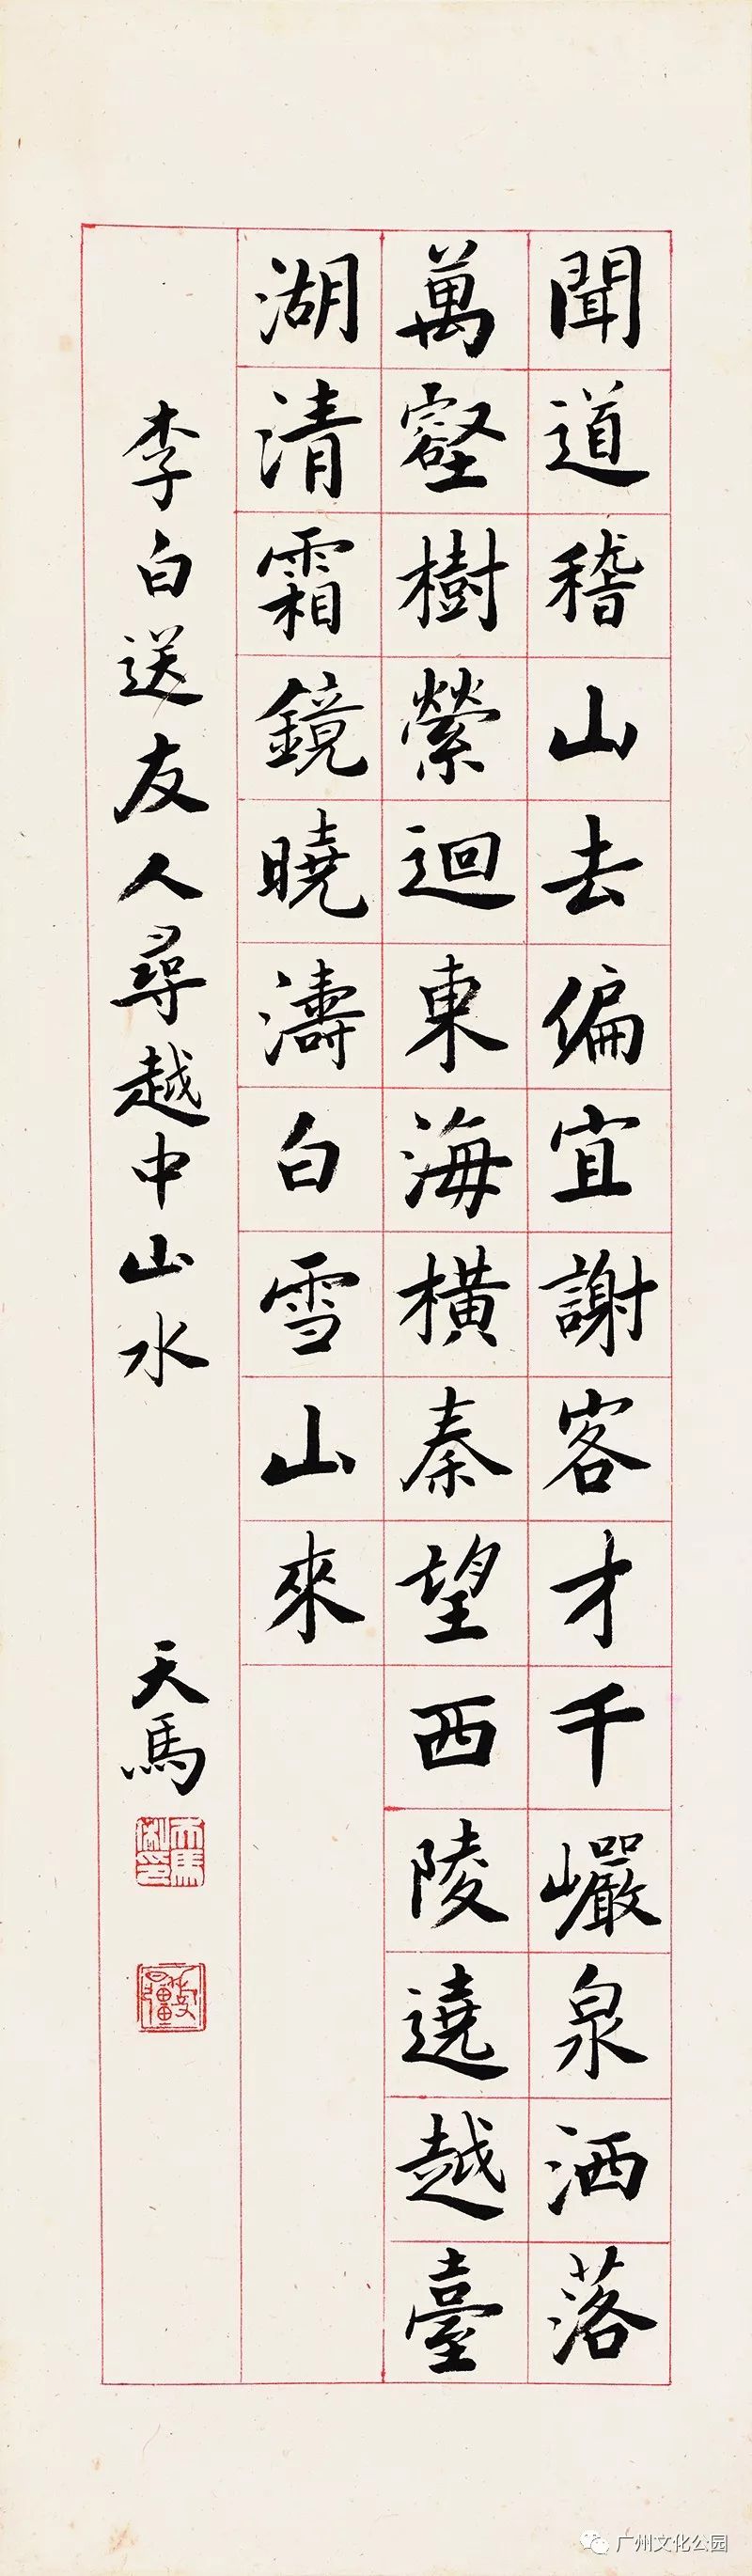 聞道稽山去偏宜謝客才千巖泉洒落
萬壑樹縈迴東海橫秦望西陵遶越臺
湖清霜鏡曉濤白雪山來
李白送友人尋越中山水
天馬
广州文化公园